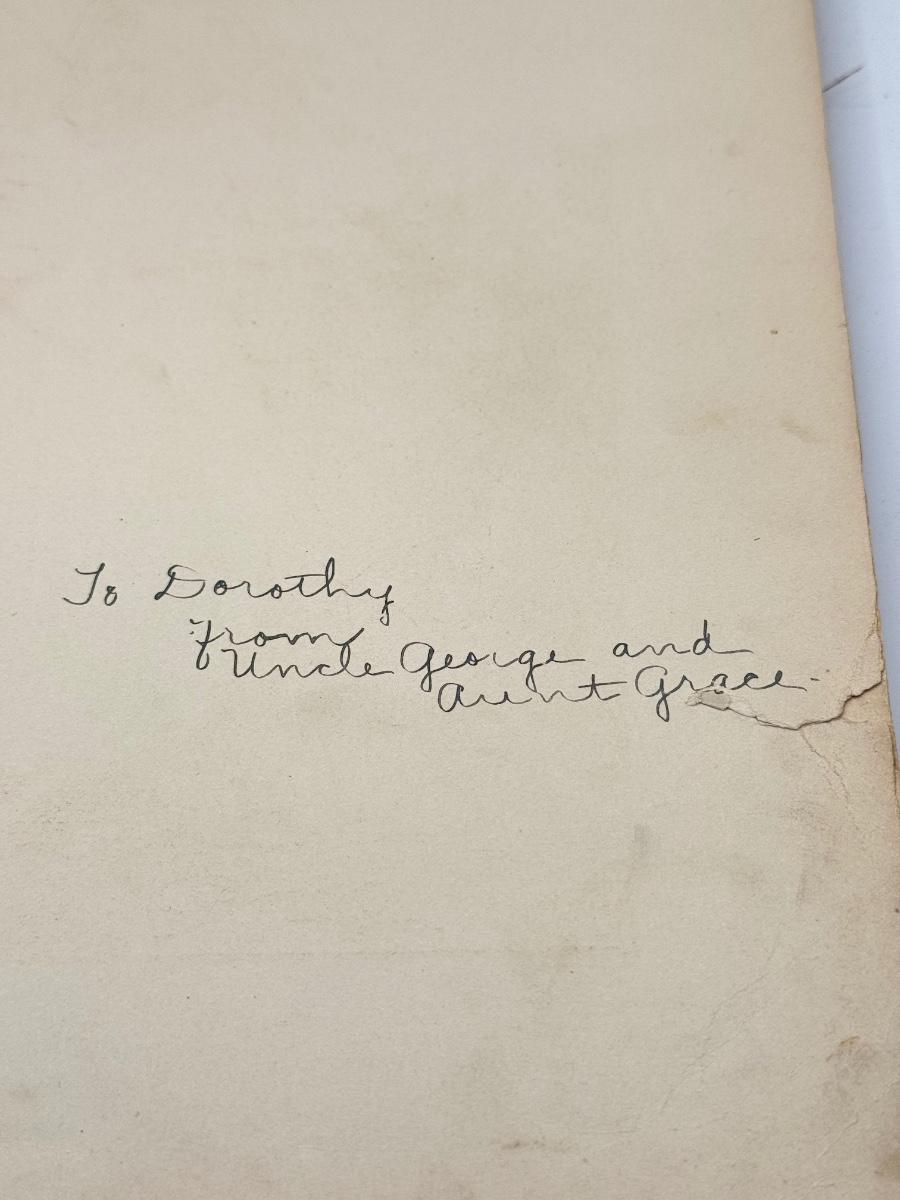 To Dorothy
From
Uncle George and
Aunt Grace.